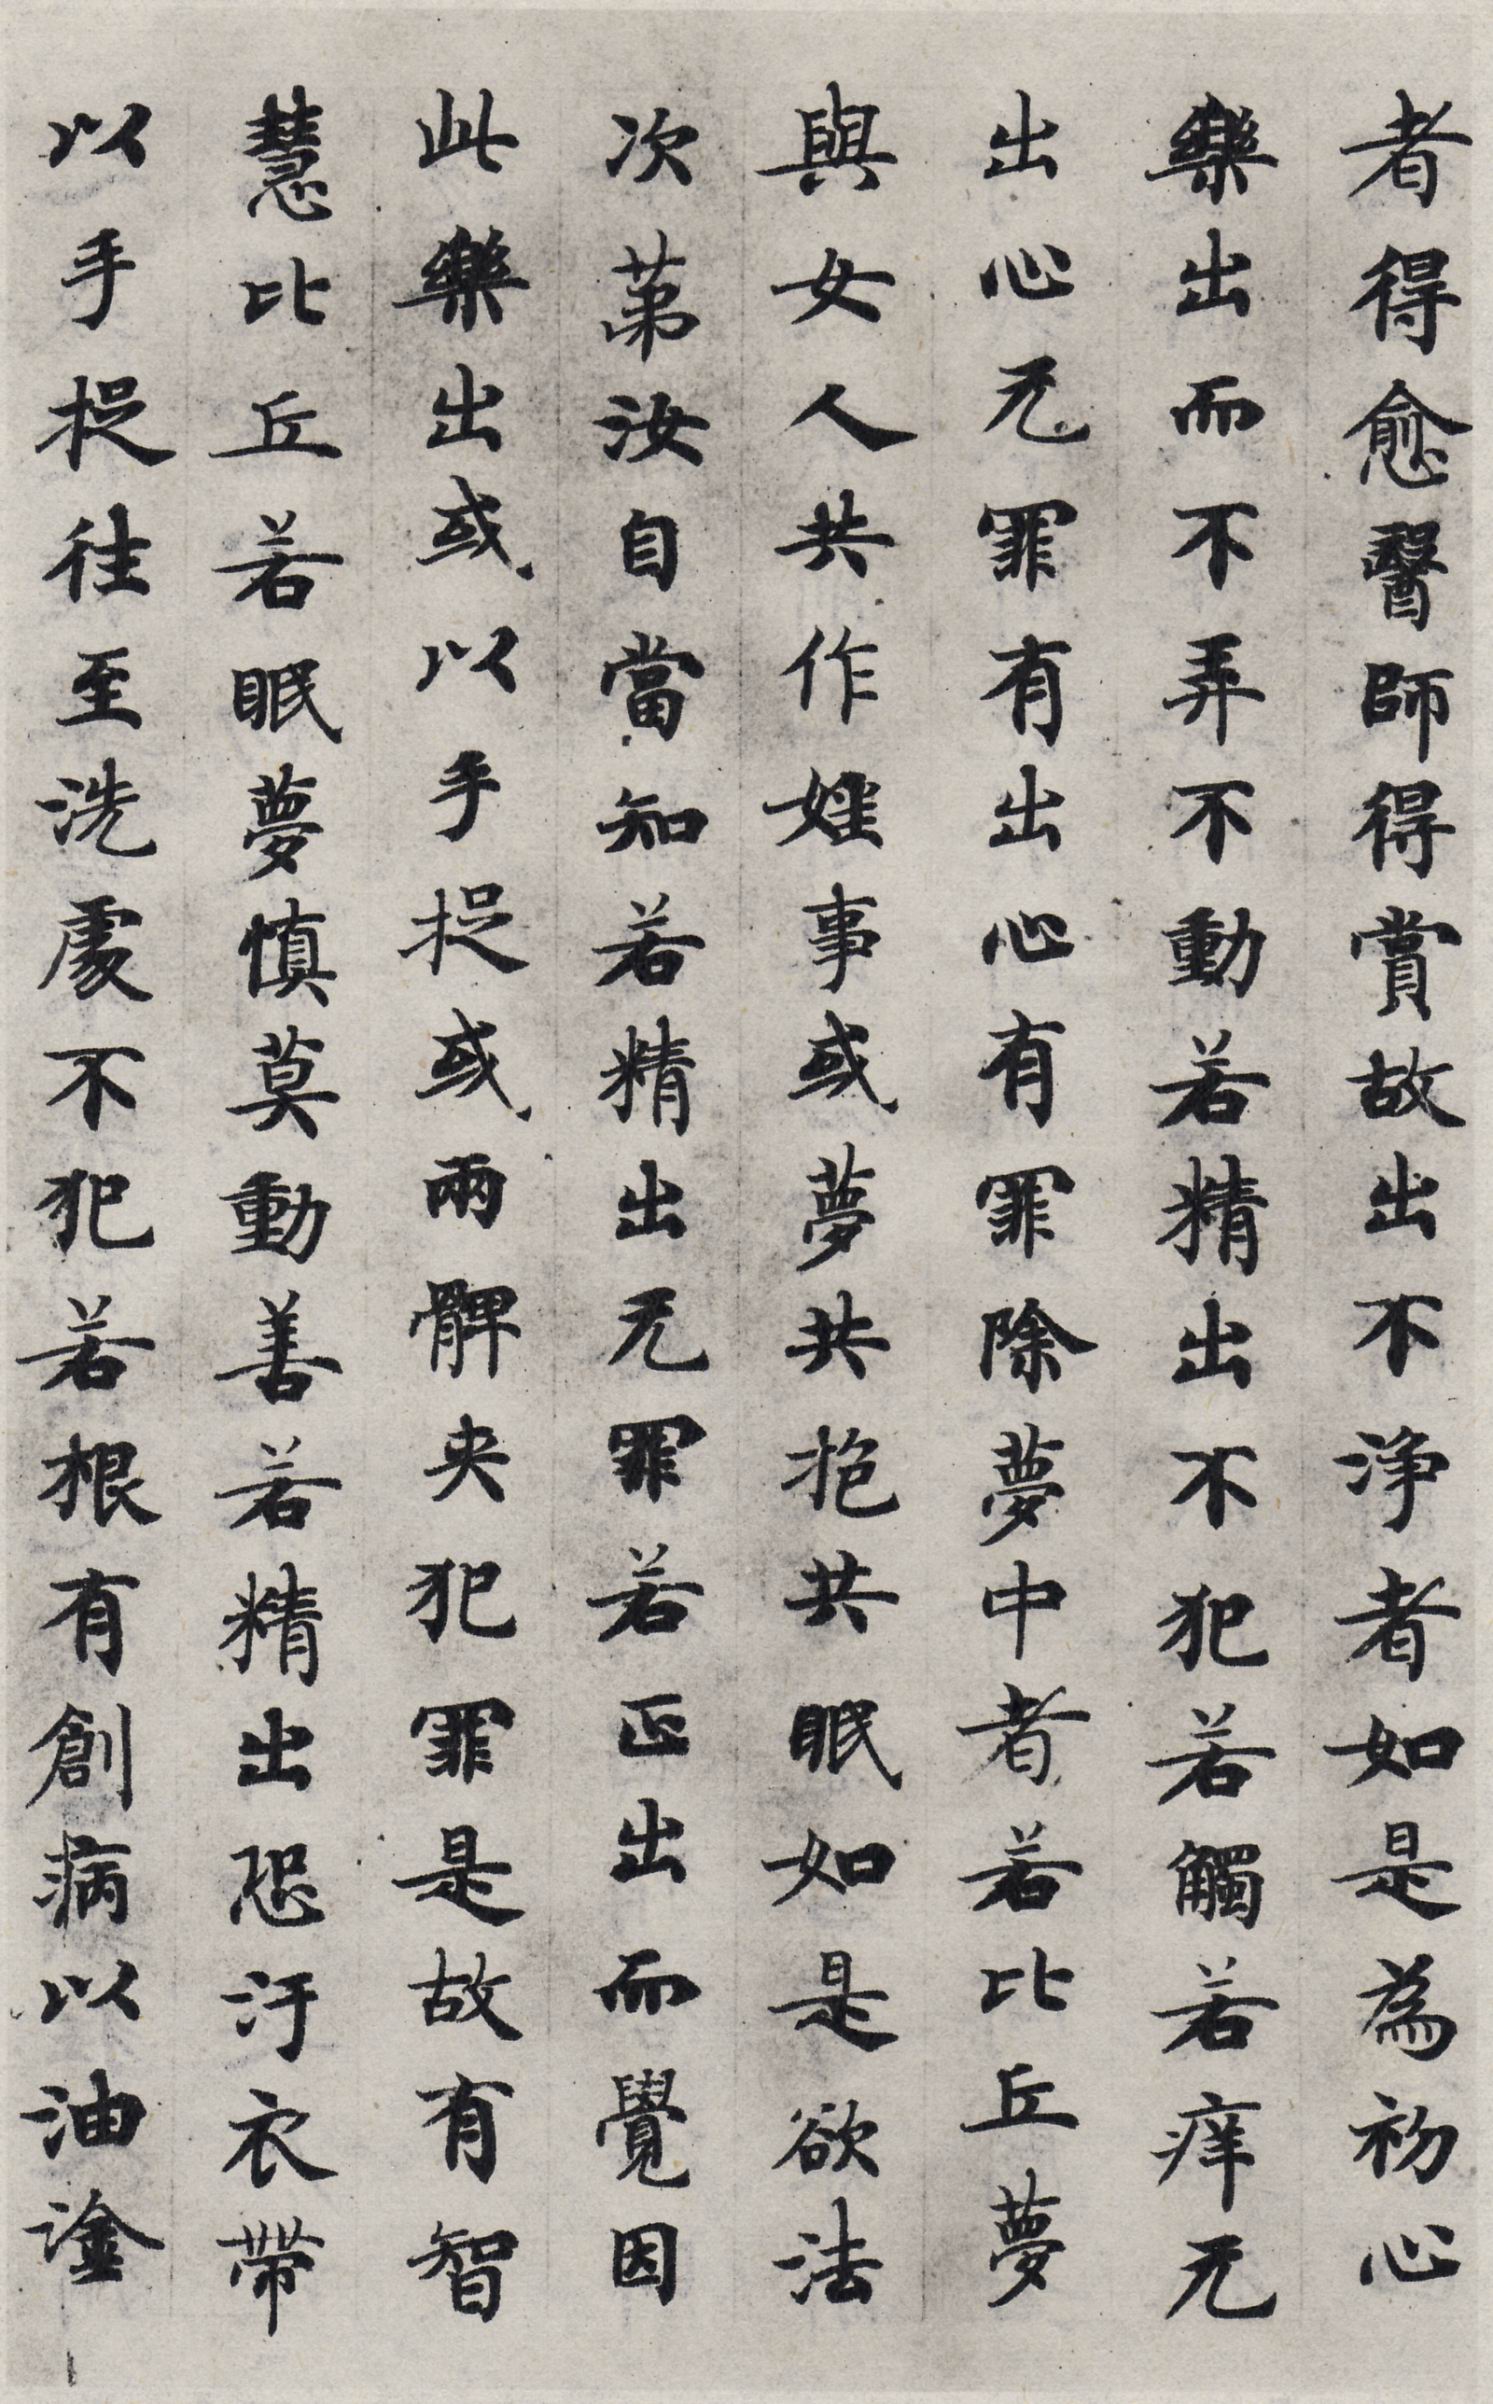 者得愈醫師得賞故出不淨者如是為初心
樂出而不弄不動若精出不犯若觸若痒无
出心无罪有出心有罪除夢中者若比丘夢
與女人共作婬事或夢共抱共眠如是欲法
次苐汝自當知若精出无罪若正出而覺因
此樂出或以手捉或兩髀夾犯罪是故有智
慧比丘若眠夢慎莫動善若精出恐汙衣帶
以手捉往至洗處不犯若根有創病以油塗